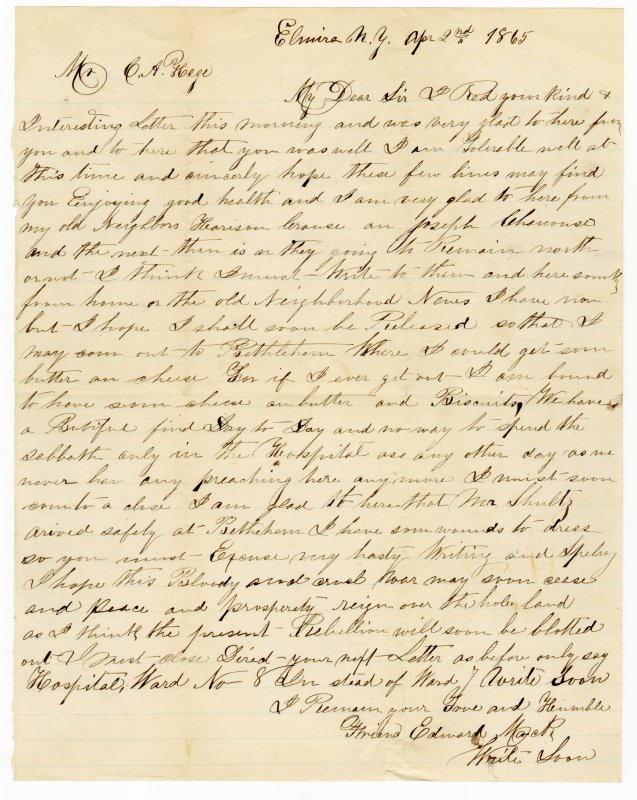 Elmira N.Y. Apr 2nd 1865
Mr C. A. Hege
My Dear Sir I Red your kind &
Interesting Letter this morning and was very glad to here from
you and to here that you was well I am Tolerable well at
this time and cincerly hope these few lines may find
you Enjoying good health and I am very glad to here from
my old Neighbors Harison Crouse an Joseph
and the next thin is ar they going to Remain north
or not I think I must Writ to them and here som
from home or the old Neighborhood News I have non
but I hope I shall soon be Released so that I
may com out to Bethlehem Where I could get som
butter an cheese For if I ever get out I am bound
to have som cheese an butter and Biscuits, We have
a Butiful find Day to Day and no way to spend the
sabbath only in the Hospital as any other day as we
never hav any preaching here any more I must soon
com to a close I am glad to here that Mr Shultz
arived safely at Bethehem I have som wounds to dress
so you must Excuse very hasty Writing and Speling
I hope this Bloody and cruel War may soon cease
and peace and prosperity reign over the hole land
as I think the present Rebellion will soon be blotted
out I must close Dired your next Letter as before only say
Hospital, Ward No 8 In stead of Ward 7 Write Soon
I Remain your True and Humble
Friend Edward Mack
Write Soon